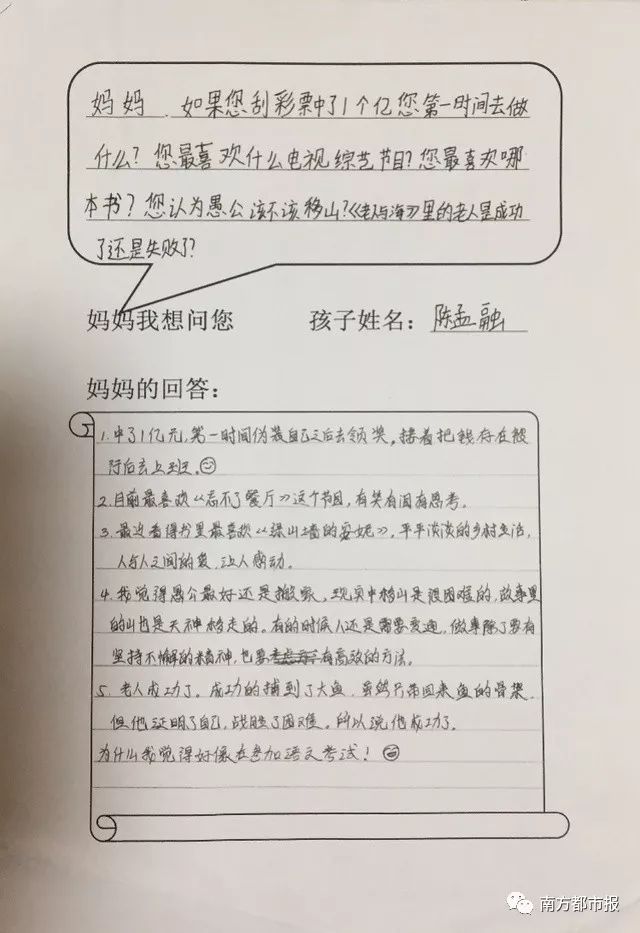 妈妈、如果您刮彩票中了1个亿您第一时间去做
什么？您最喜欢什么电视综艺节目？您最喜欢哪
本书？您认为愚公该不该移山？《老人与海》里的老人是成功
了还是失败了？
妈妈我想问您 孩子姓名：陈孟融
妈妈的回答：
1.中了1亿元，第一时间伪装自己之后去领奖。接着把钱存在银
行后去上班。
2.目前最喜欢《忘不了餐厅》这个节目，有笑有泪有思考。
3.最近看得书里最喜欢《绿山墙的安妮》，平平淡淡的乡村生活，
人与人之间的爱，让人感动。
4.我觉得愚公最好还是搬家，现实中移山是很困难的，故事里
的山也是天神移走的。有的时候人还是需要变通，做事除了要有
坚持不懈的精神，也要有高效的方法。
5.老人成功了。成功的捕到了大鱼，虽然只带回来鱼的骨架，
但他证明了自己，战胜了困难。所以说他成功了。
为什么我觉得好像在参加语文考试！
南方都市报